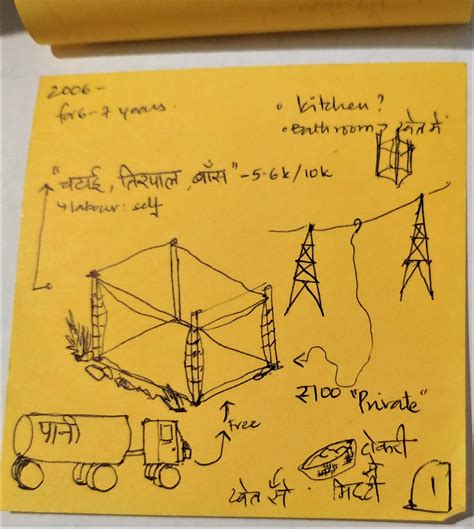 2006 -
for 6-7 years.
• kitchen?
• Bathroom? खेत में
"चटाई, तिरपाल, बाँस" - 5-6k/10k
labour: self
₹100 "Private"
Free
पानी
टोकरी
से
खेत से · मिट्टी
1